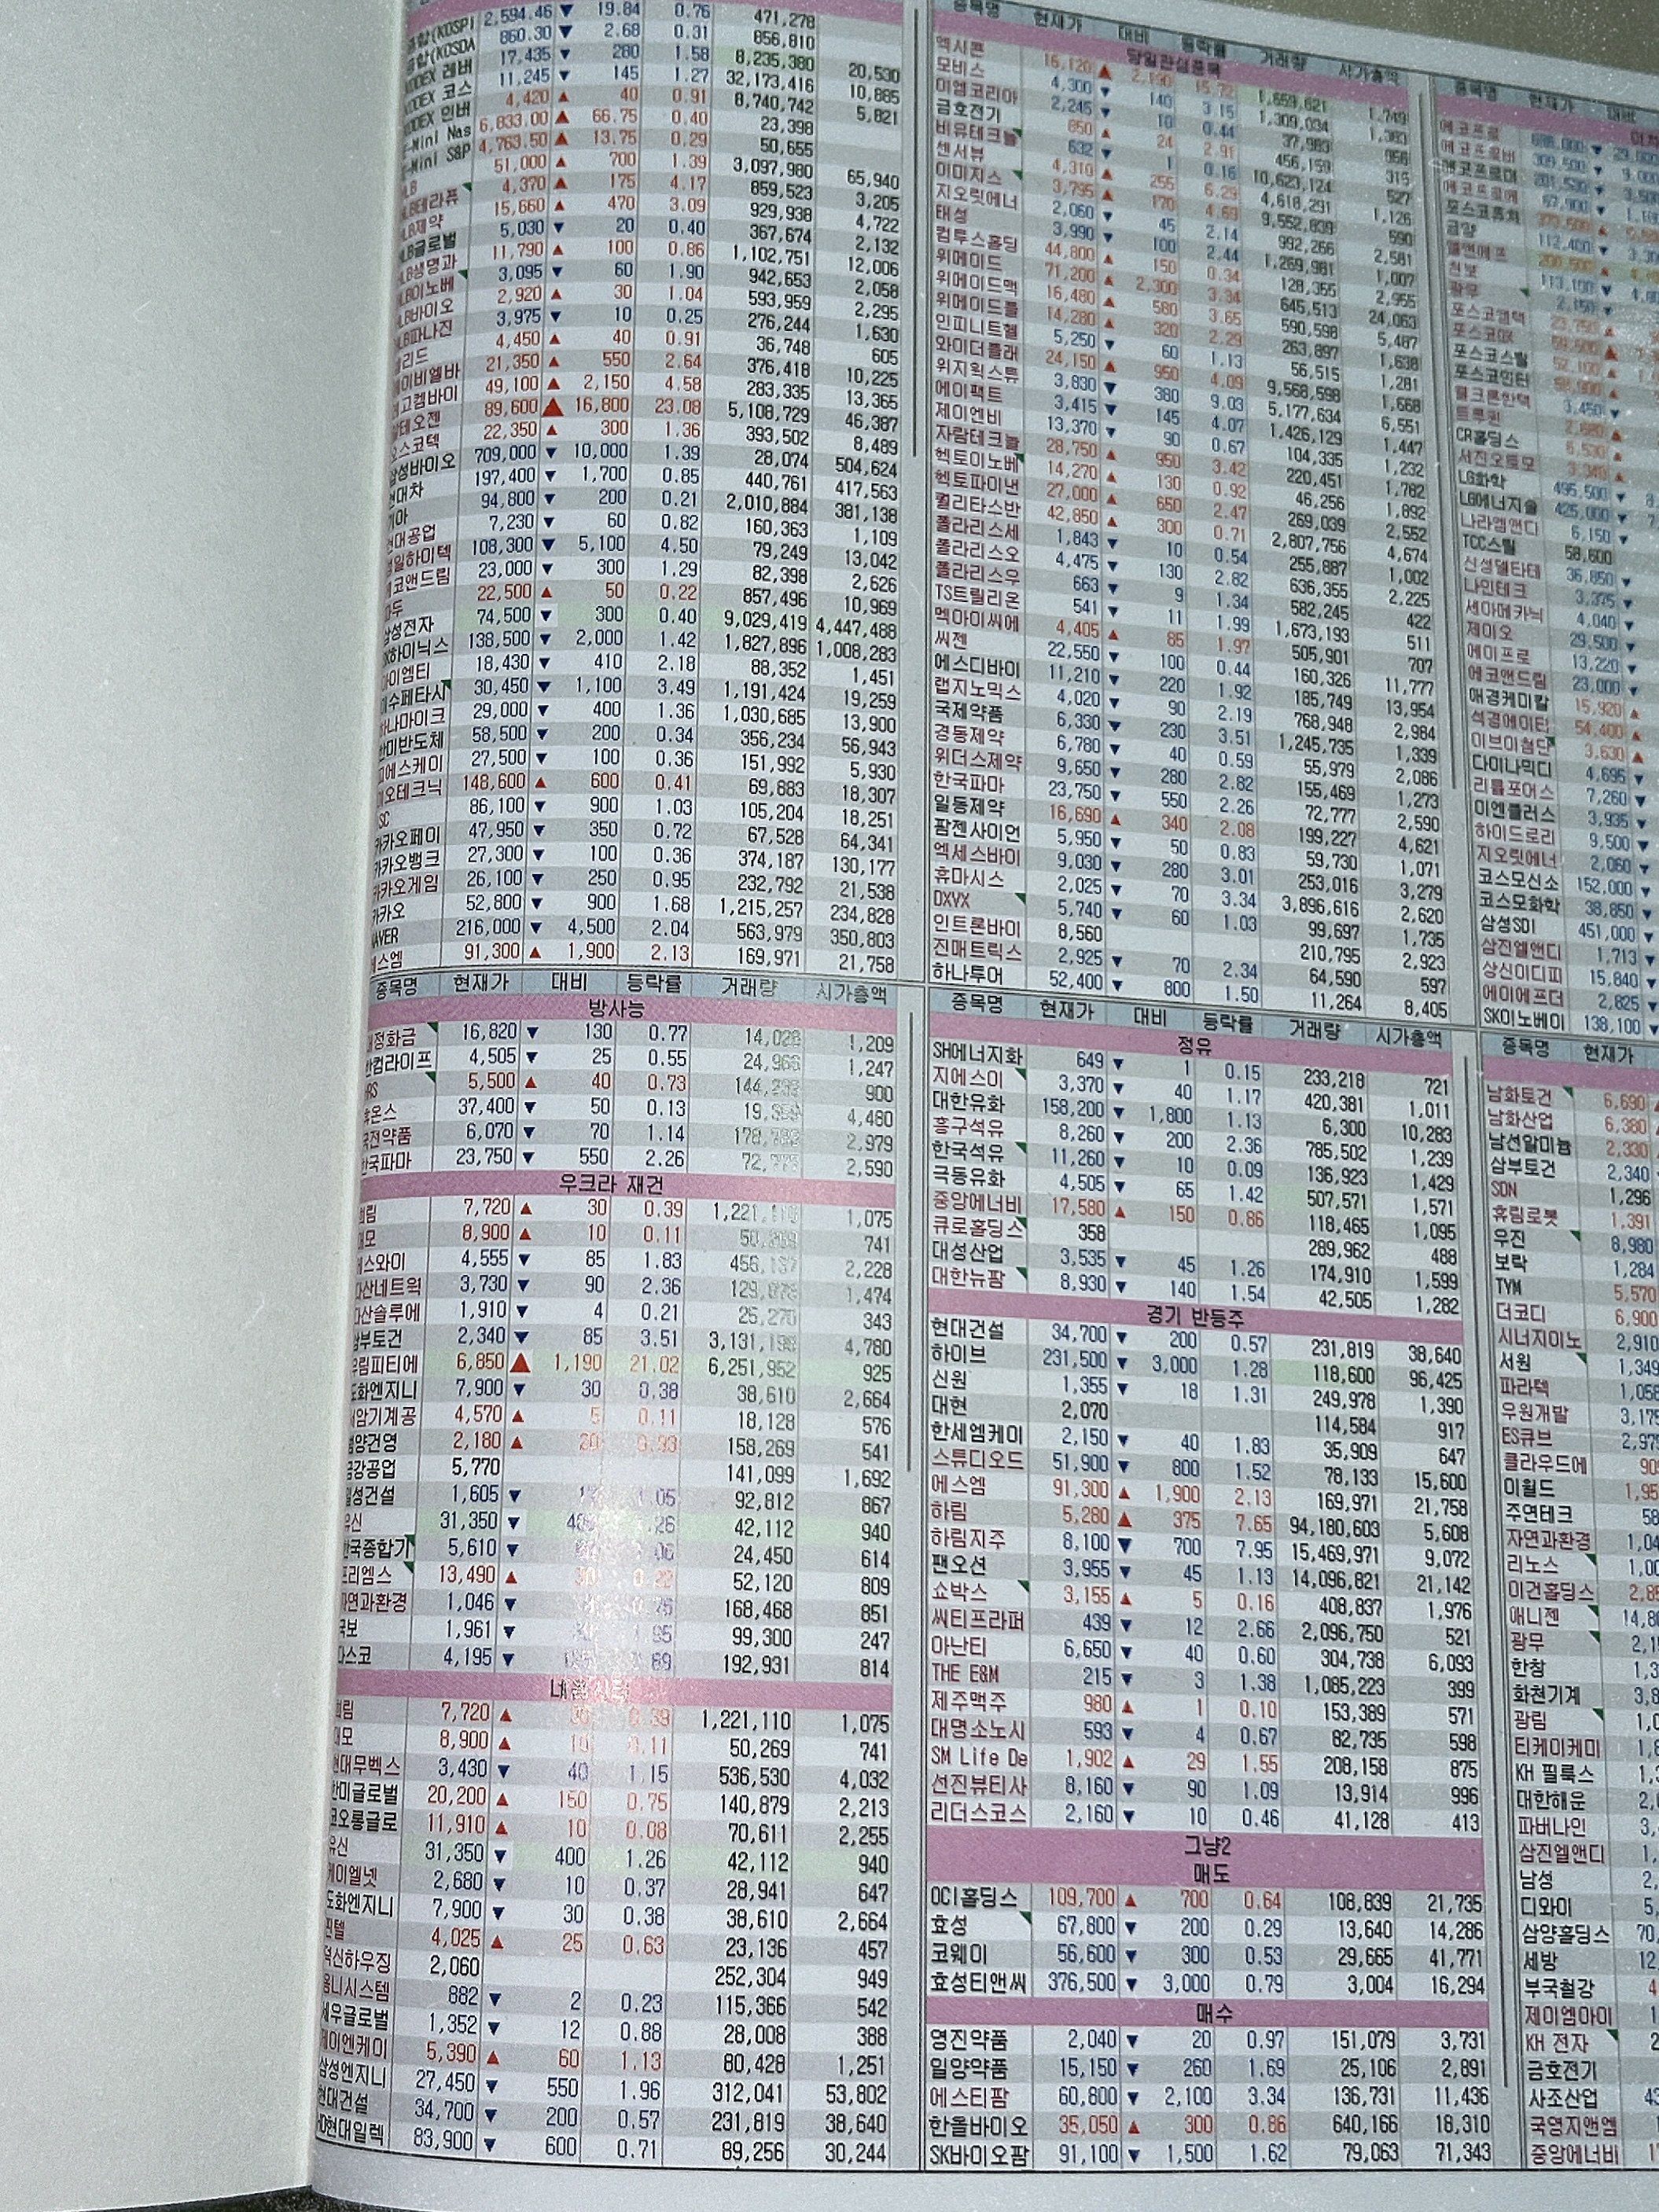 종합(KOSPI 2,594.46 ▼ 19.84 0.76 471,278
종합(KOSDA 860.30 ▼ 2.68 0.31 856,810
KODEX 레버 17,435 ▼ 280 1.58 8,235,380 20,530
KODEX 코스 11,245 ▼ 145 1.27 32,173,416 10,885
KODEX 인버 4,420 ▲ 40 0.91 8,740,742 5,821
E-Mini Nas 6,833.00 ▲ 66.75 0.40 23,398
E-Mini S&P 4,763.50 ▲ 13.75 0.29 50,655
HLB 51,000 ▲ 700 1.39 3,097,980 65,940
HLB테라퓨 4,370 ▲ 175 4.17 859,523 3,205
HLB제약 15,660 ▲ 470 3.09 929,938 4,722
HLB글로벌 5,030 ▼ 20 0.40 367,674 2,132
HLB생명과 11,790 ▲ 100 0.86 1,102,751 12,006
HLB이노베 3,095 ▼ 60 1.90 942,653 2,058
HLB바이오 2,920 ▲ 30 1.04 593,959 2,295
HLB파나진 3,975 ▼ 10 0.25 276,244 1,630
셀리드 4,450 ▲ 40 0.91 36,748 605
에이비엘바 21,350 ▲ 550 2.64 376,418 10,225
레고켐바이 49,100 ▲ 2,150 4.58 283,335 13,365
알테오젠 89,600 ▲ 16,800 23.08 5,108,729 46,387
오스코텍 22,350 ▲ 300 1.36 393,502 8,489
삼성바이오 709,000 ▼ 10,000 1.39 28,074 504,624
현대차 197,400 ▼ 1,700 0.85 440,761 417,563
기아 94,800 ▼ 200 0.21 2,010,884 381,138
현대공업 7,230 ▼ 60 0.82 160,363 1,109
성일하이텍 108,300 ▼ 5,100 4.50 79,249 13,042
에코앤드림 23,000 ▼ 300 1.29 82,398 2,626
파두 22,500 ▲ 50 0.22 857,496 10,969
삼성전자 74,500 ▼ 300 0.40 9,029,419 4,447,488
SK하이닉스 138,500 ▼ 2,000 1.42 1,827,896 1,008,283
아이엠티 18,430 ▼ 410 2.18 88,352 1,451
이수페타시 30,450 ▼ 1,100 3.49 1,191,424 19,259
하나마이크 29,000 ▼ 400 1.36 1,030,685 13,900
한미반도체 58,500 ▼ 200 0.34 356,234 56,943
고에스케이 27,500 ▼ 100 0.36 151,992 5,930
이오테크닉 148,600 ▲ 600 0.41 69,883 18,307
SC 86,100 ▼ 900 1.03 105,204 18,251
카카오페이 47,950 ▼ 350 0.72 67,528 64,341
카카오뱅크 27,300 ▼ 100 0.36 374,187 130,177
카카오게임 26,100 ▼ 250 0.95 232,792 21,538
카카오 52,800 ▼ 900 1.68 1,215,257 234,828
NAVER 216,000 ▼ 4,500 2.04 563,979 350,803
에스엠 91,300 ▲ 1,900 2.13 169,971 21,758
종목명 현재가 대비 등락률 거래량 시가총액
방사능
대정화금 16,820 ▼ 130 0.77 14,028 1,209
한컴라이프 4,505 ▼ 25 0.55 24,966 1,247
HRS 5,500 ▲ 40 0.73 900
휴온스 37,400 ▼ 50 0.13 4,480
국전약품 6,070 ▼ 70 1.14 2,979
한국파마 23,750 ▼ 550 2.26 2,590
우크라 재건
희림 7,720 ▲ 30 0.39 1,221,110 1,075
대모 8,900 ▲ 10 0.11 741
에스와이 4,555 ▼ 85 1.83 2,228
다산네트웍 3,730 ▼ 90 2.36 1,474
다산솔루에 1,910 ▼ 4 0.21 25,270 343
삼부토건 2,340 ▼ 85 3.51 4,780
우림피티에 6,850 ▲ 1,190 21.02 6,251,952 925
도화엔지니 7,900 ▼ 30 0.38 38,610 2,664
서암기계공 4,570 ▲ 5 0.11 18,128 576
범양건영 2,180 ▲ 20 0.93 158,269 541
금강공업 5,770 141,099 1,692
일성건설 1,605 ▼ 1.05 92,812 867
유신 31,350 ▼ 400 1.26 42,112 940
한국종합기 5,610 ▼ 24,450 614
프리엠스 13,490 ▲ 0.22 52,120 809
자연과환경 1,046 ▼ 168,468 851
국보 1,961 ▼ 99,300 247
다스코 4,195 ▼ 192,931 814
희림 7,720 ▲ 30 0.39 1,221,110 1,075
대모 8,900 ▲ 10 0.11 50,269 741
현대무벡스 3,430 ▼ 40 1.15 536,530 4,032
한미글로벌 20,200 ▲ 150 0.75 140,879 2,213
코오롱글로 11,910 ▲ 10 0.08 70,611 2,255
유신 31,350 ▼ 400 1.26 42,112 940
케이엘넷 2,680 ▼ 10 0.37 28,941 647
도화엔지니 7,900 ▼ 30 0.38 38,610 2,664
핀텔 4,025 ▲ 25 0.63 23,136 457
덕신하우징 2,060 252,304 949
옴니시스템 882 ▼ 2 0.23 115,366 542
세우글로벌 1,352 ▼ 12 0.88 28,008 388
제이엔케이 5,390 ▲ 60 1.13 80,428 1,251
삼성엔지니 27,450 ▼ 550 1.96 312,041 53,802
현대건설 34,700 ▼ 200 0.57 231,819 38,640
HD현대일렉 83,900 ▼ 600 0.71 89,256 30,244
종목명 현재가 대비 등락률 거래량 시가총액
당일관심종목
엑시콘 16,120 ▲ 2,190 15.72 1,659,621 1,749
모비스 4,300 ▼ 140 3.15 1,309,034 1,383
이엠코리아 2,245 ▼ 10 0.44 37,983 956
금호전기 850 ▲ 24 2.91 456,159 315
비유테크놀 632 ▼ 1 0.16 10,623,124 527
센서뷰 4,310 ▲ 255 6.29 4,618,291 1,126
이미지스 3,795 ▲ 170 4.69 9,552,839 590
지오릿에너 2,060 ▼ 45 2.14 992,266 2,581
태성 3,990 ▼ 100 2.44 1,269,981 1,007
컴투스홀딩 44,800 ▲ 150 0.34 128,355 2,955
위메이드 71,200 ▲ 2,300 3.34 645,513 24,063
위메이드맥 16,480 ▲ 580 3.65 590,598 5,487
위메이드플 14,280 ▲ 320 2.29 263,897 1,638
인피니트헬 5,250 ▼ 60 1.13 56,515 1,281
와이더플래 24,150 ▲ 950 4.09 9,568,598 1,668
위지윅스튜 3,830 ▼ 380 9.03 5,177,634 6,551
에이팩트 3,415 ▼ 145 4.07 1,426,129 1,447
제이엔비 13,370 ▼ 90 0.67 104,335 1,232
자람테크놀 28,750 ▲ 950 3.42 220,451 1,782
헥토이노베 14,270 ▲ 130 0.92 46,256 1,892
헥토파이낸 27,000 ▲ 650 2.47 269,039 2,552
퀄리타스반 42,850 ▲ 300 0.71 2,807,756 4,674
폴라리스세 1,843 ▼ 10 0.54 255,887 1,002
폴라리스오 4,475 ▼ 130 2.82 636,355 2,225
폴라리스우 663 ▼ 9 1.34 582,245 422
TS트릴리온 541 ▼ 11 1.99 1,673,193 511
멕아이씨에 4,405 ▲ 85 1.97 505,901 707
씨젠 22,550 ▼ 100 0.44 160,326 11,777
에스디바이 11,210 ▼ 220 1.92 185,749 13,954
랩지노믹스 4,020 ▼ 90 2.19 768,948 2,984
국제약품 6,330 ▼ 230 3.51 1,245,735 1,339
경동제약 6,780 ▼ 40 0.59 55,979 2,086
위더스제약 9,650 ▼ 280 2.82 155,469 1,273
한국파마 23,750 ▼ 550 2.26 72,777 2,590
일동제약 16,690 ▲ 340 2.08 199,227 4,621
팜젠사이언 5,950 ▼ 50 0.83 59,730 1,071
엑세스바이 9,030 ▼ 280 3.01 253,016 3,279
휴마시스 2,025 ▼ 70 3.34 3,896,616 2,620
DXVX 5,740 ▼ 60 1.03 99,697 1,735
인트론바이 8,560 210,795 2,923
진매트릭스 2,925 ▼ 70 2.34 64,590 597
하나투어 52,400 ▼ 800 1.50 11,264 8,405
종목명 현재가 대비 등락률 거래량 시가총액
정유
SH에너지화 649 ▼ 1 0.15 233,218 721
지에스이 3,370 ▼ 40 1.17 420,381 1,011
대한유화 158,200 ▼ 1,800 1.13 6,300 10,283
흥구석유 8,260 ▼ 200 2.36 785,502 1,239
한국석유 11,260 ▼ 10 0.09 136,923 1,429
극동유화 4,505 ▼ 65 1.42 507,571 1,571
중앙에너비 17,580 ▲ 150 0.86 118,465 1,095
큐로홀딩스 358 289,962 488
대성산업 3,535 ▼ 45 1.26 174,910 1,599
대한뉴팜 8,930 ▼ 140 1.54 42,505 1,282
경기 반등주
현대건설 34,700 ▼ 200 0.57 231,819 38,640
하이브 231,500 ▼ 3,000 1.28 118,600 96,425
신원 1,355 ▼ 18 1.31 249,978 1,390
대현 2,070 114,584 917
한세엠케이 2,150 ▼ 40 1.83 35,909 647
스튜디오드 51,900 ▼ 800 1.52 78,133 15,600
에스엠 91,300 ▲ 1,900 2.13 169,971 21,758
하림 5,280 ▲ 375 7.65 94,180,603 5,608
하림지주 8,100 ▼ 700 7.95 15,469,971 9,072
팬오션 3,955 ▼ 45 1.13 14,096,821 21,142
쇼박스 3,155 ▲ 5 0.16 408,837 1,976
씨티프라퍼 439 ▼ 12 2.66 2,096,750 521
아난티 6,650 ▼ 40 0.60 304,738 6,093
THE E&M 215 ▼ 3 1.38 1,085,223 399
제주맥주 980 ▲ 1 0.10 153,389 571
대명소노시 593 ▼ 4 0.67 82,735 598
SM Life De 1,902 ▲ 29 1.55 208,158 875
선진뷰티사 8,160 ▼ 90 1.09 13,914 996
리더스코스 2,160 ▼ 10 0.46 41,128 413
그냥2
매도
OCI홀딩스 109,700 ▲ 700 0.64 108,839 21,735
효성 67,800 ▼ 200 0.29 13,640 14,286
코웨이 56,600 ▼ 300 0.53 29,665 41,771
효성티앤씨 376,500 ▼ 3,000 0.79 3,004 16,294
매수
영진약품 2,040 ▼ 20 0.97 151,079 3,731
일양약품 15,150 ▼ 260 1.69 25,106 2,891
에스티팜 60,800 ▼ 2,100 3.34 136,731 11,436
한올바이오 35,050 ▲ 300 0.86 640,166 18,310
SK바이오팜 91,100 ▼ 1,500 1.62 79,063 71,343
종목명 현재가 대비
에코프로
에코프로비
에코프로머
에코프로에
포스코퓨처
금양 112,400 ▼
엘앤에프
천보 113,100 ▼
광무
포스코엠텍
포스코DX
포스코스틸
포스코인터
웰크론한텍 3,450 ▼
트루윈
CR홀딩스 6,530 ▲
서진오토모
LG화학 495,500 ▼
LG에너지솔 425,000 ▼
나라엠앤디 6,150 ▼
TCC스틸 58,600
신성델타테 36,850 ▼
나인테크 3,375 ▼
세아메카닉 4,040 ▼
제이오 29,500 ▼
에이프로 13,220 ▼
에코앤드림 23,000 ▼
애경케미칼 15,920 ▲
석경에이티 54,400 ▲
이브이첨단 3,630 ▲
다이나믹디 4,695 ▼
리튬포어스 7,260 ▼
미엔플러스 3,935 ▼
하이드로리 9,500 ▼
지오릿에너 2,060 ▼
코스모신소 152,000 ▼
코스모화학 38,850 ▼
삼성SDI 451,000 ▼
삼진엘앤디 1,713 ▼
상신이디피 15,840 ▼
에이에프더 2,825 ▼
SK이노베이 138,100 ▼
종목명 현재가
남화토건 6,690
남화산업 6,380
남선알미늄 2,330
삼부토건 2,340
SDN 1,296
휴림로봇 1,391
우진 8,980
보락 1,284
TYM 5,570
더코디 6,900
시너지이노 2,910
서원 1,349
파라텍 1,058
우원개발 3,175
ES큐브
클라우드에
미월드
주연테크
자연과환경
리노스
이건홀딩스
애니젠
광무
한창
화천기계
광림
티케이케미
KH 필룩스
대한해운
파버나인
삼진엘앤디
남성
디와이
삼양홀딩스
세방
부국철강
제이엠아이
KH 전자
금호전기
사조산업
국영지앤엠
중앙에너비